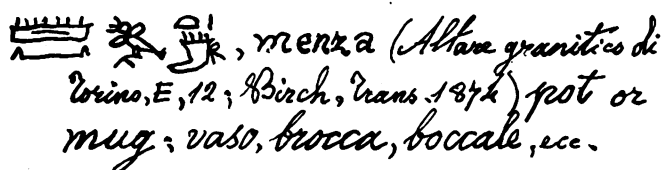 , menza (Altare granitico di
Torino, E, 12; Birch, Trans. 1874) pot or
mug; vaso, brocca, boccale, ecc.